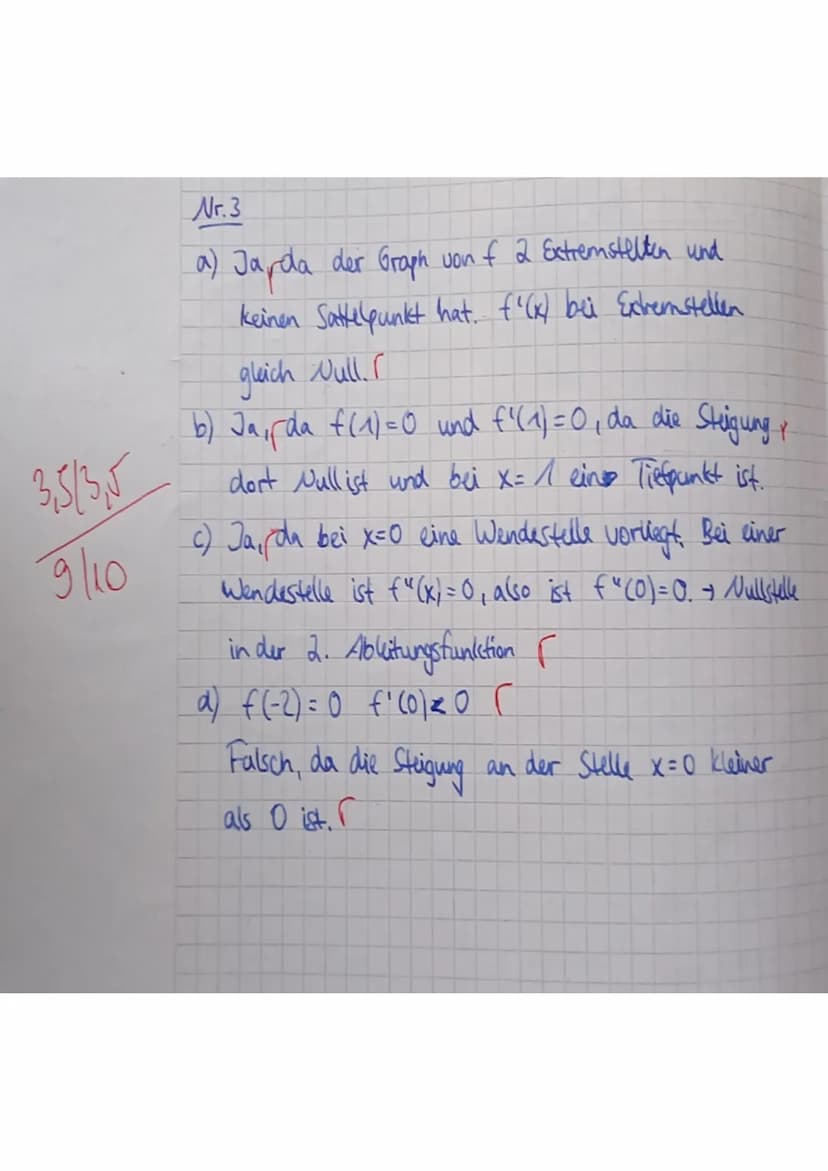 Nr. 3
a) Ja, da der Graph von f 2 Extremstellen und
keinen Sattelpunkt hat. f'(x) bei Extremstellen
gleich Null.
b) Ja, da f(1)=0 und f'(1)=0, da die Steigung
dort Null ist und bei x=1 ein Tiefpunkt ist.
3,5/3,5
9/10
c) Ja, da bei x=0 eine Wendestelle vorliegt. Bei einer
Wendestelle ist f"(x)=0, also ist f"(0)=0. → Nullstelle
in der 2. Ableitungsfunktion
d) f(-2)=0 f'(0)<0
Falsch, da die Steigung an der Stelle x=0 kleiner
als 0 ist.